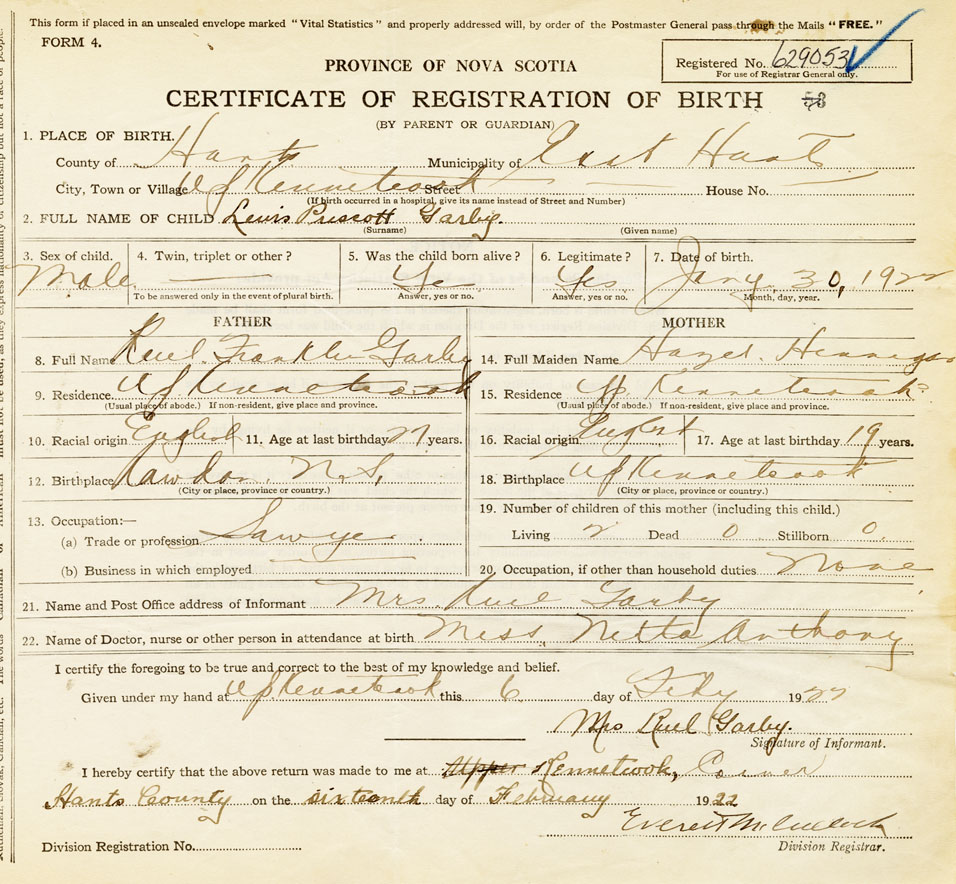 This form if placed in an unsealed envelope marked "Vital Statistics" and properly addressed will, by order of the Postmaster General pass through the Mails "FREE."
FORM 4.
Registered No. 629053
For use of Registrar General only.
PROVINCE OF NOVA SCOTIA
CERTIFICATE OF REGISTRATION OF BIRTH
(BY PARENT OR GUARDIAN)
1. PLACE OF BIRTH.
County of Hants Municipality of East Hants
City, Town or Village Up Kennetcook Street House No.
(If birth occurred in a hospital, give its name instead of Street and Number)
2. FULL NAME OF CHILD Lewis Prescott Garby.
(Surname) (Given name)
3. Sex of child. 4. Twin, triplet or other? 5. Was the child born alive? 6. Legitimate? 7. Date of birth.
Male Yes Yes Jany 30, 1922
To be answered only in the event of plural birth. Answer, yes or no. Answer, yes or no. Month, day, year.
FATHER MOTHER
8. Full Name Ruel Franklin Garby 14. Full Maiden Name Hazel Hennigar
9. Residence Up Kennetcook 15. Residence Up Kennetcook
(Usual place of abode.) If non-resident, give place and province. (Usual place of abode.) If non-resident, give place and province.
10. Racial origin English 11. Age at last birthday 27 years. 16. Racial origin 17. Age at last birthday 19 years.
12. Birthplace Rawdon, N.S, 18. Birthplace Up Kennetcook
(City or place, province or country.) (City or place, province or country.)
13. Occupation:— 19. Number of children of this mother (including this child.)
(a) Trade or profession Sawyer Living 2 Dead 0 Stillborn 0
(b) Business in which employed 20. Occupation, if other than household duties None
21. Name and Post Office address of Informant Mrs Ruel Garby
22. Name of Doctor, nurse or other person in attendance at birth Miss Netta Anthony
I certify the foregoing to be true and correct to the best of my knowledge and belief.
Given under my hand at Up Kennetcook this 6 day of Feby 1922
Mrs Ruel Garby.
Signature of Informant.
I hereby certify that the above return was made to me at Upper Kennetcook, Corner
Hants County on the sixteenth day of February 1922
Everett McCulloch
Division Registration No. Division Registrar.